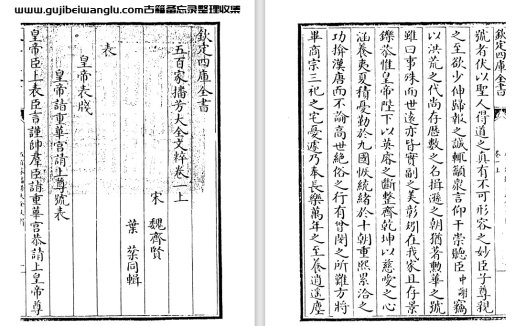 www.gujibeiwanglu.com古籍备忘录整理收集
欽定四庫全書
五百家播芳大全文粹卷一上
宋 魏齊賢
葉棻同輯
表
皇帝表牋
皇帝請重華宮請上尊號表
皇帝臣上表臣言謹帥羣臣詣重華宮恭請上皇帝尊
欽定四庫全書
號者伏以聖人得道之真有不可形容之妙臣子尊親
之至欲少伸歸報之誠輒顓衆言仰干崇聽臣中謝竊
以洪荒之代尚存歷數之名揖遜之朝猶著勲華之號
雖曰事殊而世遠亦皆實副而美彰矧在我家且存景
鑠恭惟皇帝陛下以英睿之斷整齊乾坤以慈愛之心
涵養夷夏積憂勤於九國恢統緒於十朝重熙累洽之
功揜漢唐而不論高世絶俗之行有曾閔之所難方將
畢商宗三祀之宅憂遽乃奉長樂萬年之至養逍遥塵